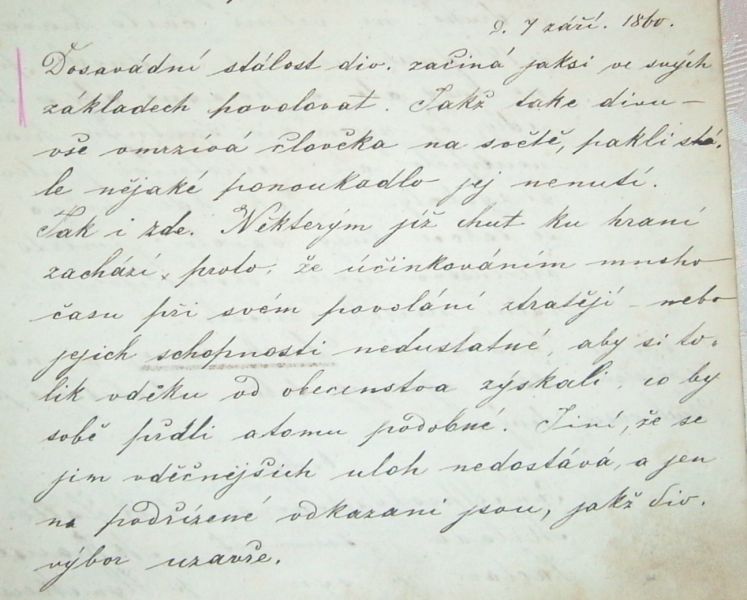 d. 7 září. 1860.
Dosavádní stálost div. začíná jaksi ve svých
základech povolovat. Takž take divu–
vše omrzívá človčka na světě, pakli stá-
le nějaké ponoukadlo jej nenutí.
Tak i zde. Některým již chut ku hraní
zachází, proto, že účinkováním mnoho
času při svém povolání ztratějí – nebo
jejich schopnosti nedustatné, aby si to-
lik vděku od obecenstva zýskali, co by
sobě přáli a tomu podobné. Jiní, že se
jim vděčnějších uloh nedostává, a jen
na podřízené odkazani jsou, jakž div.
výbor uzavře.